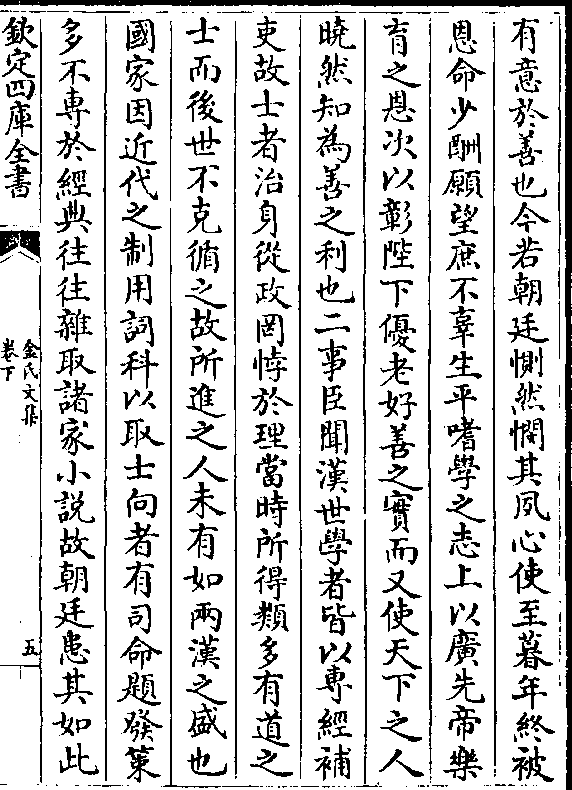 有意於善也今若朝廷惻然憫其夙心使至暮年終被
恩命少酬願望庶不辜生平嗜學之志上以廣先帝樂
育之恩次以彰陛下優老好善之實而又使天下之人
曉然知為善之利也二事臣聞漢世學者皆以專經補
吏故士者治身從政罔悖於理當時所得類多有道之
士而後世不克循之故所進之人未有如兩漢之盛也
國家因近代之制用詞科以取士向者有司命題發策
多不專於經典往往雜取諸家小説故朝廷患其如此
欽定四庫全書
金氏文集
卷下
五